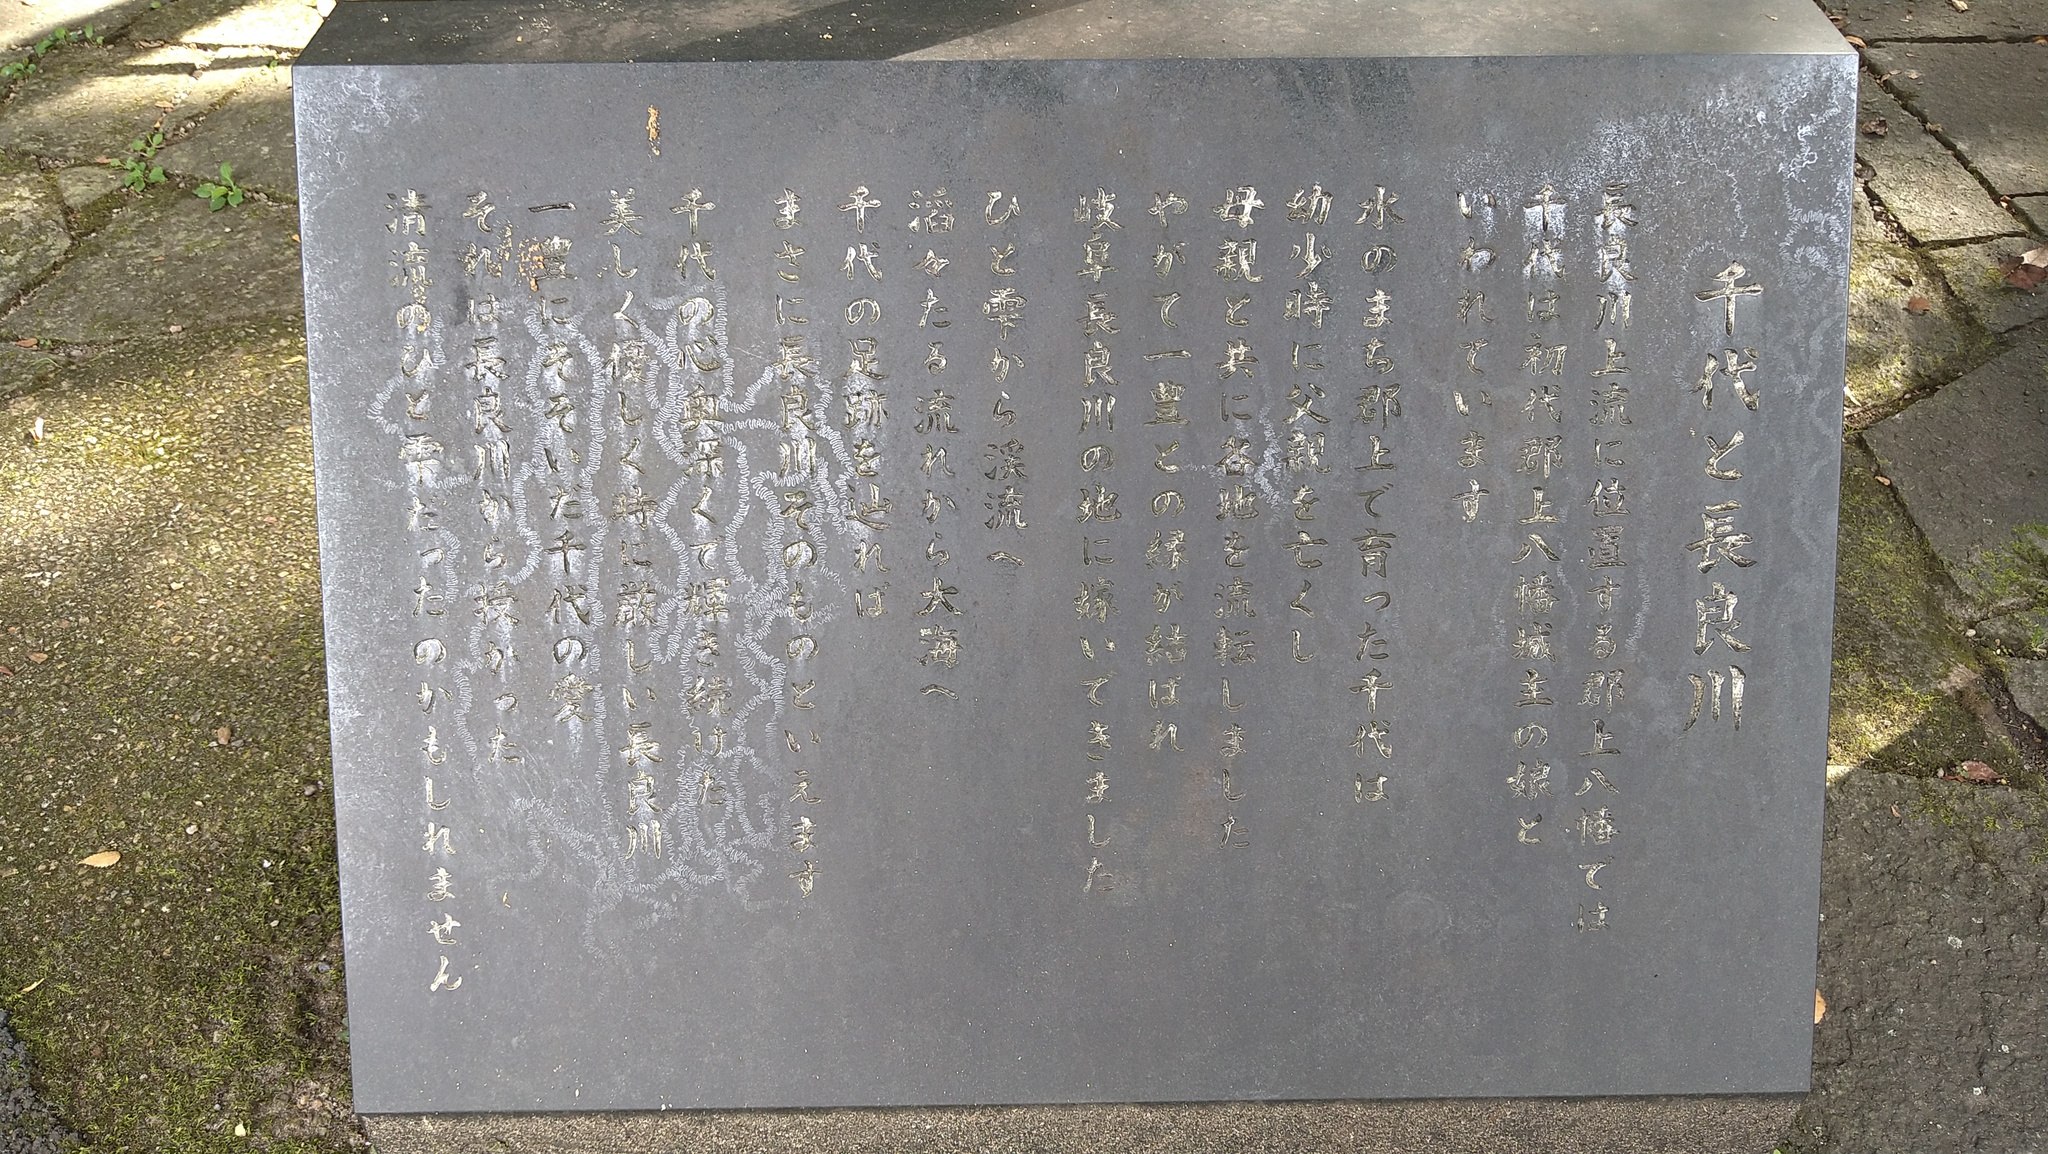 千代と長良川
長良川上流に位置する郡上八幡では
千代は初代郡上八幡城主の娘と
いわれています
水のまち郡上で育った千代は
幼少時に父親を亡くし
母親と共に各地を流転しました
やがて一豊との縁が結ばれ
岐阜長良川の地に嫁いできました
ひと雫から渓流へ
滔々たる流れから大海へ
千代の足跡を辿れば
まさに長良川そのものといえます
千代の心奥深くで輝き続けた
美しく優しく時に厳しい長良川
一豊にそそいだ千代の愛
それは長良川から授かった
清流のひと雫だったのかもしれません